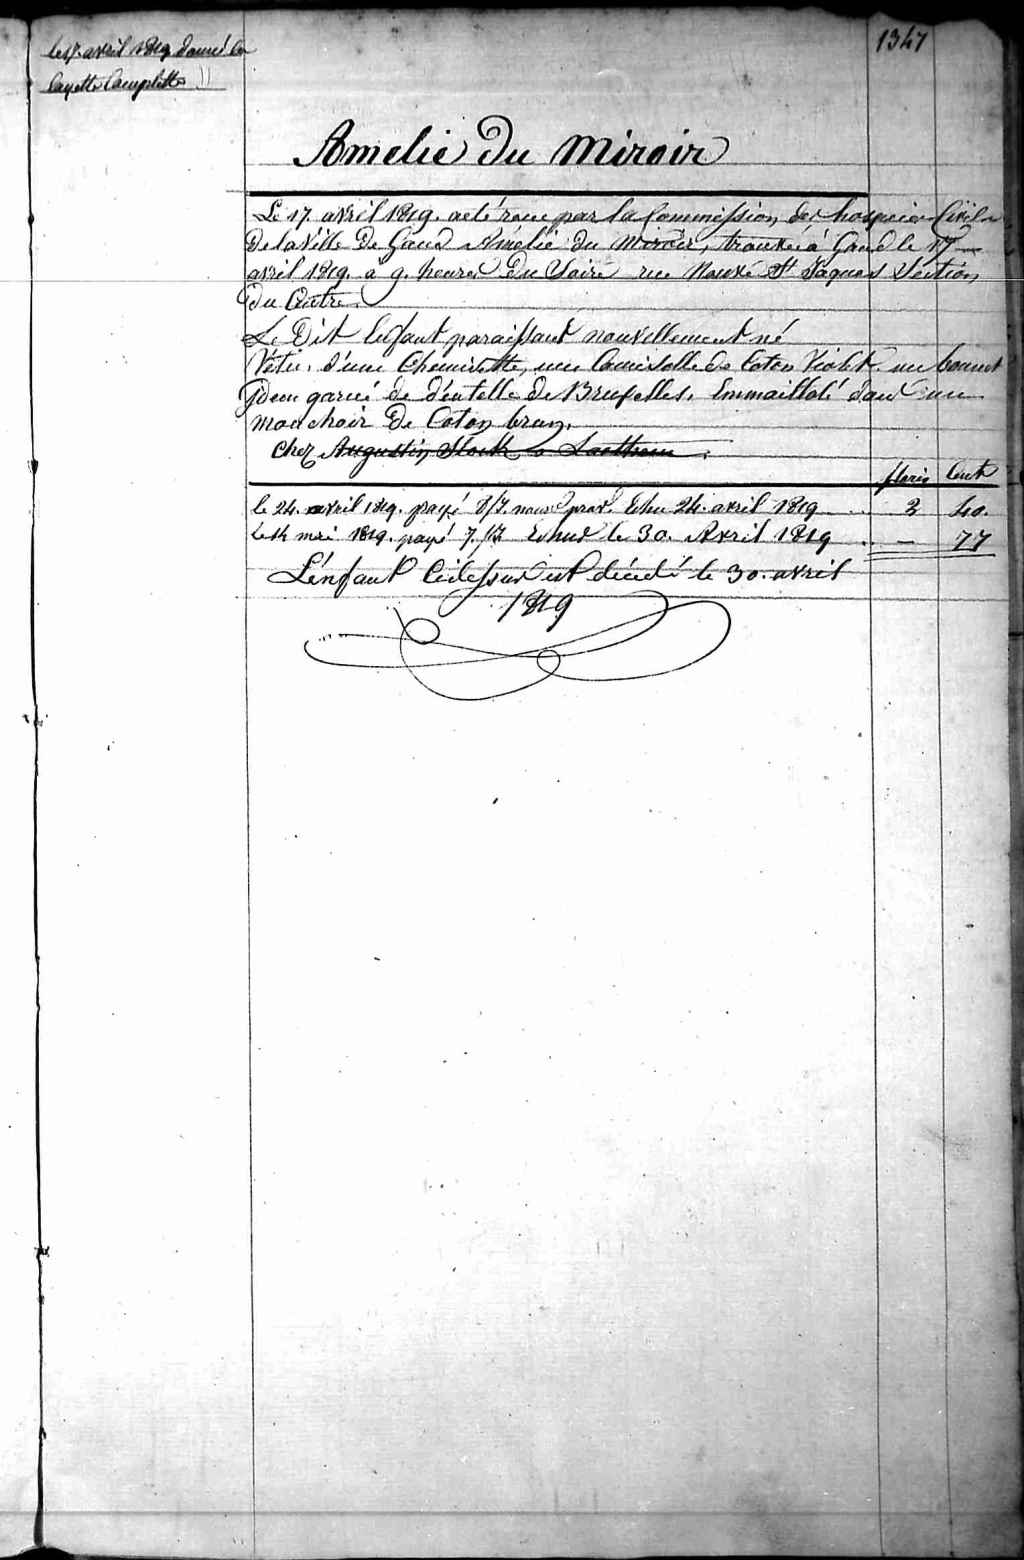 le 17. avril 1819 donné la
layette Complette
1347
Amelie du Miroir
Le 17. avril 1819. a été recue par la Commission des hospices Civils
De la Ville De Gand Amélie du Miroir, trouvée à Gand le 17
avril 1819. a 9. heures Du Soire rue Neuve St Jaques Section
Du Centre.
Le Dit Enfant paraissant nouvellement né
Vétu d'une Chemisette, une Camisolle de Coton Violet. un bonnet
garni de déntelle de Bruxelles, Emmaillolé dans un
mouchoir De Coton brun,
chez Augustin a
floris Cents
le 24. avril 1819. payé Echu 24. avril 1819 2 40.
le 14 mai 1819. payé 7. Echus le 30. Avril 1819 — 77
L'énfant Cidessus est décédé le 30. avril
1819